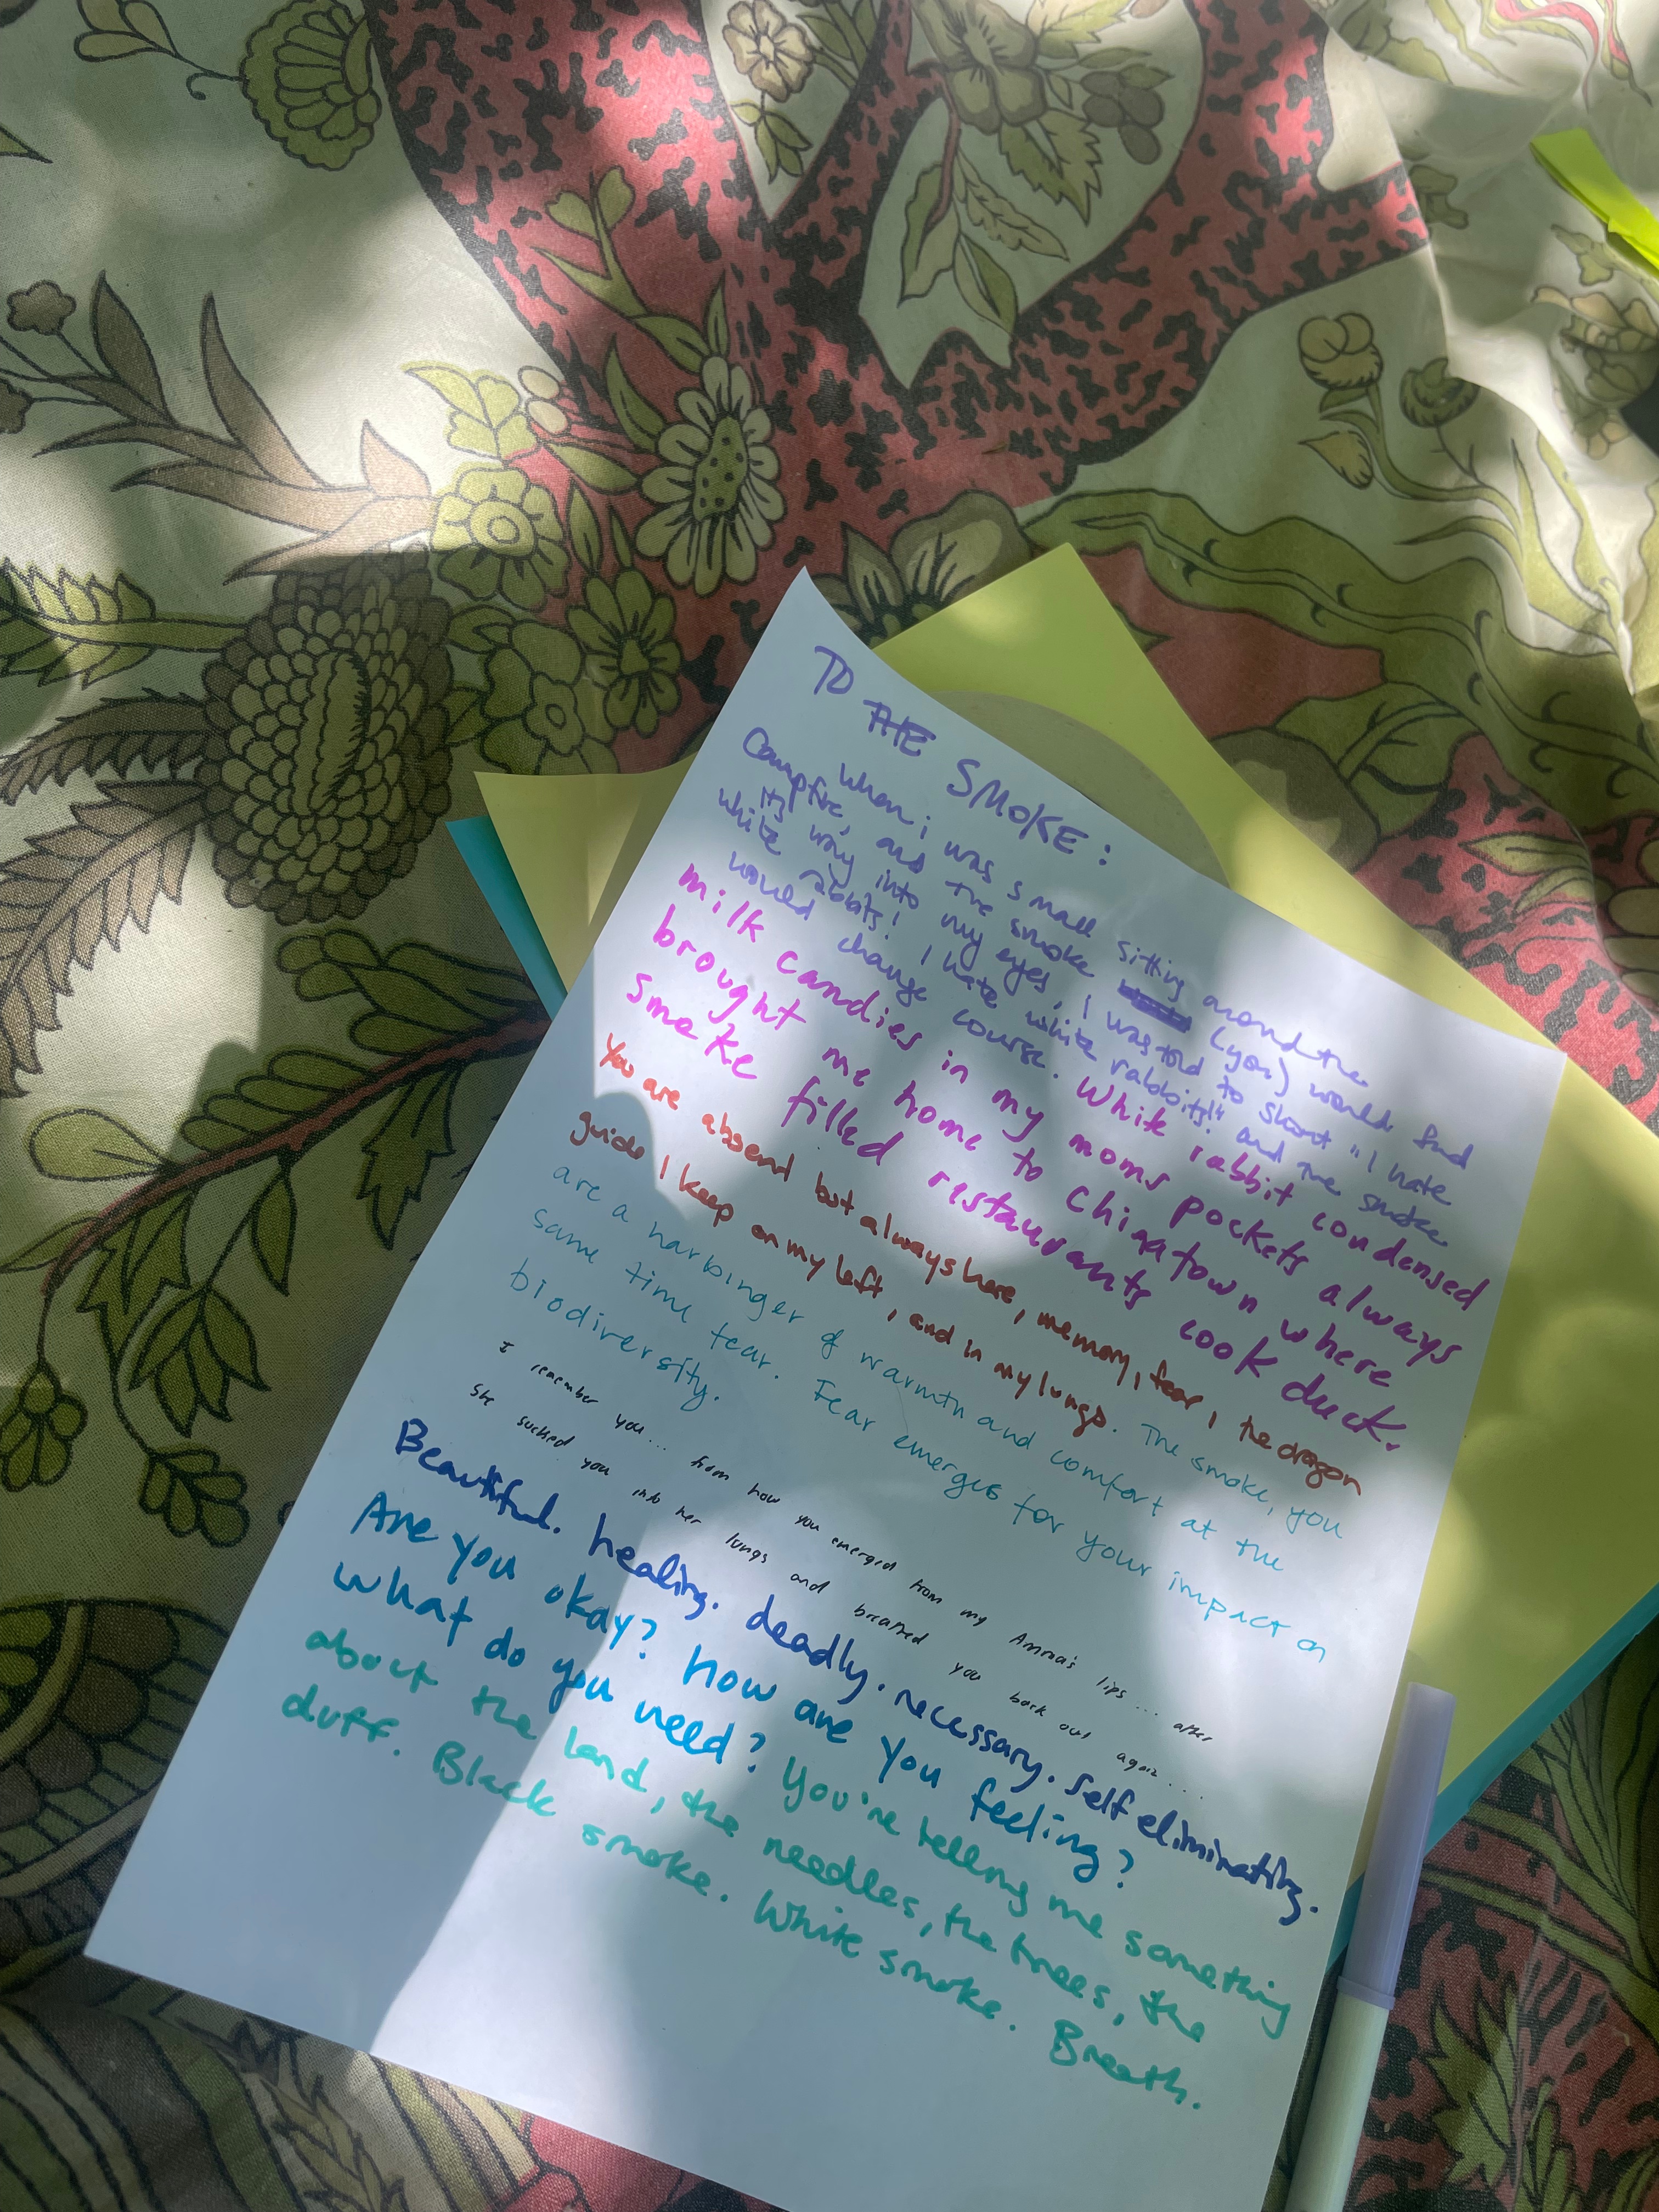 TO THE SMOKE:
When i was small sitting around the
Campfire, and the smoke (you) would find
its way into my eyes, I was told to shout "I hate
white rabbits! I hate white rabbits!" and the smoke
would change course. White rabbit condensed
milk candies in my moms pockets always
brought me home to Chinatown where
smoke filled restaurants cook duck.
You are absent but always here, memory, fear, the dragon
guide I keep on my left, and in my lungs. The smoke, you
are a harbinger of warmth and comfort at the
same time fear. Fear emerges for your impact on
biodiversity.
I remember you... from how you emerged from my Amma's lips.... after
She sucked you into her lungs and breathed you back out again...
Beautiful. healing. deadly. necessary. Self eliminating.
Are you okay? How are you feeling?
What do you need? You're telling me something
about the land, the needles, the trees, the
duff. Black smoke. White smoke. Breath.